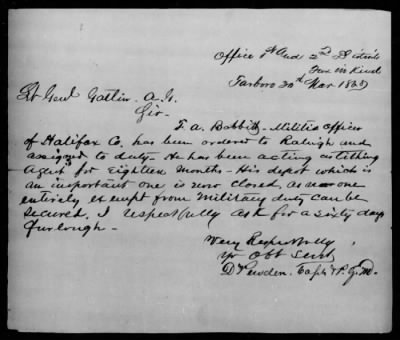 Office 1st and 2nd Districts
Tax in Kind
Tarboro 30th Mar 1865
Lt Genl Gatlin. A. G.
Sir-
T. A. Babbitt - Militia Officer
of Halifax Co. has been ordered to Raleigh and
assigned to duty - He has been acting as tithing
Agent for Eighteen months - His depot which is
an important one is now closed, as no one
entirely exempt from Military duty can be
secured. I respectfully ask for a sixty days
furlough -
Very Respectfully
yr Obt Servt
D Pender. Capt & P. Q. M.